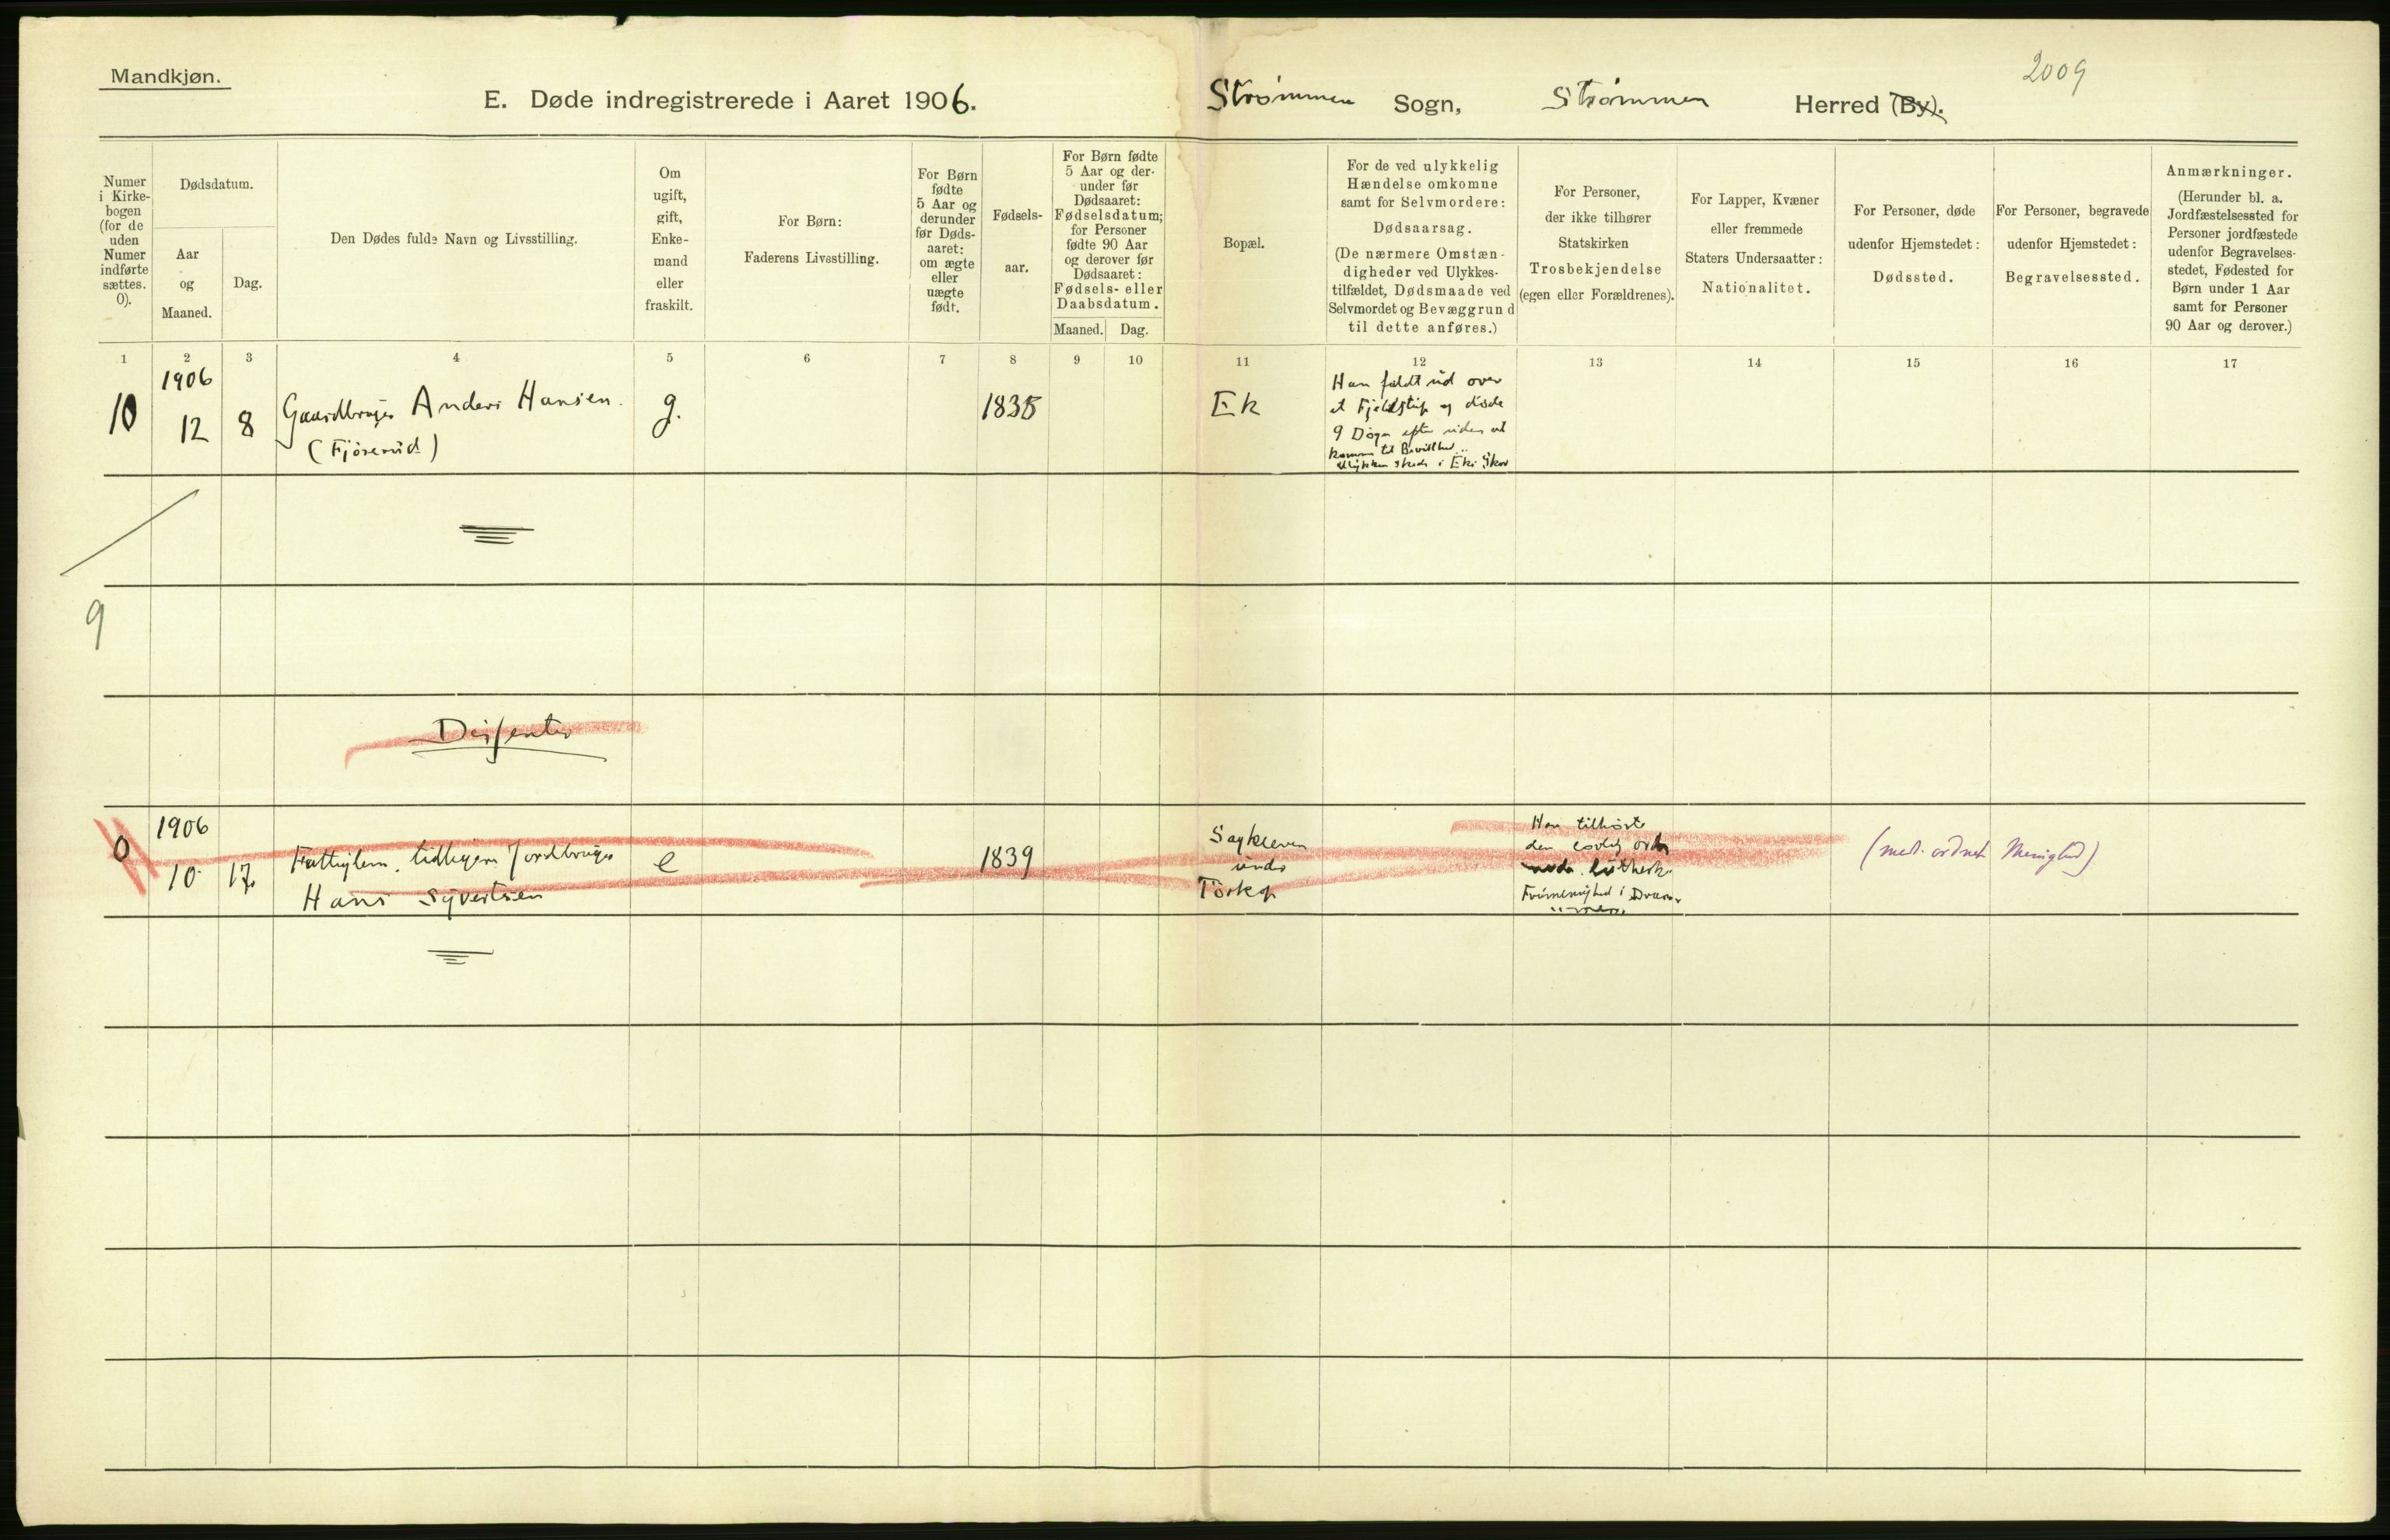 Mandkjøn.
E. Døde indregistrerede i Aaret 1906. Strømmen Sogn, Strømmen Herred (By).
2009
Numer i Kirkebogen (for de uden Numer indførte sættes. 0).
Dødsdatum.
Aar og Maaned.
Dag.
Den Dødes fulde Navn og Livsstilling.
Om ugift, gift, Enkemand eller fraskilt.
For Børn: Faderens Livsstilling.
For Børn fødte 5 Aar og derunder før Dødsaaret: om ægte eller uægte født.
Fødselsaar.
For Børn fødte 5 Aar og derunder før Dødsaaret: Fødselsdatum; for Personer fødte 90 Aar og derover før Dødsaaret: Fødsels- eller Daabsdatum.
Maaned. Dag.
Bopæl.
For de ved ulykkelig Hændelse omkomne samt for Selvmordere: Dødsaarsag. (De nærmere Omstændigheder ved Ulykkestilfældet, Dødsmaade ved Selvmordet og Bevæggrund til dette anføres.)
For Personer, der ikke tilhører Statskirken Trosbekjendelse (egen eller Forældrenes).
For Lapper, Kvæner eller fremmede Staters Undersaatter: Nationalitet.
For Personer, døde udenfor Hjemstedet: Dødssted.
For Personer, begravede udenfor Hjemstedet: Begravelsessted.
Anmærkninger. (Herunder bl. a. Jordfæstelsessted for Personer jordfæstede udenfor Begravelsesstedet, Fødested for Børn under 1 Aar samt for Personer 90 Aar og derover.)
1 2 3 4 5 6 7 8 9 10 11 12 13 14 15 16 17
1906
10 12 8 Gaardbruger Anders Hansen. g. 1835 Ek
(Fjøserud)
Han faldt ud over
et Fjeldstup og døde
9 Døgn efter uden at
komme til Bevidsthed.
Ulykken skede i Eks Skov
9
Dissenter
1906
0 10 17. Fattiglem. tidligere Jordbruger e 1839
Hans Syvertsen
under
Torkop
Han tilhørte
den evang
luthersk
Frimenighed i Dram-
men.
(med. ordnet Menighed)